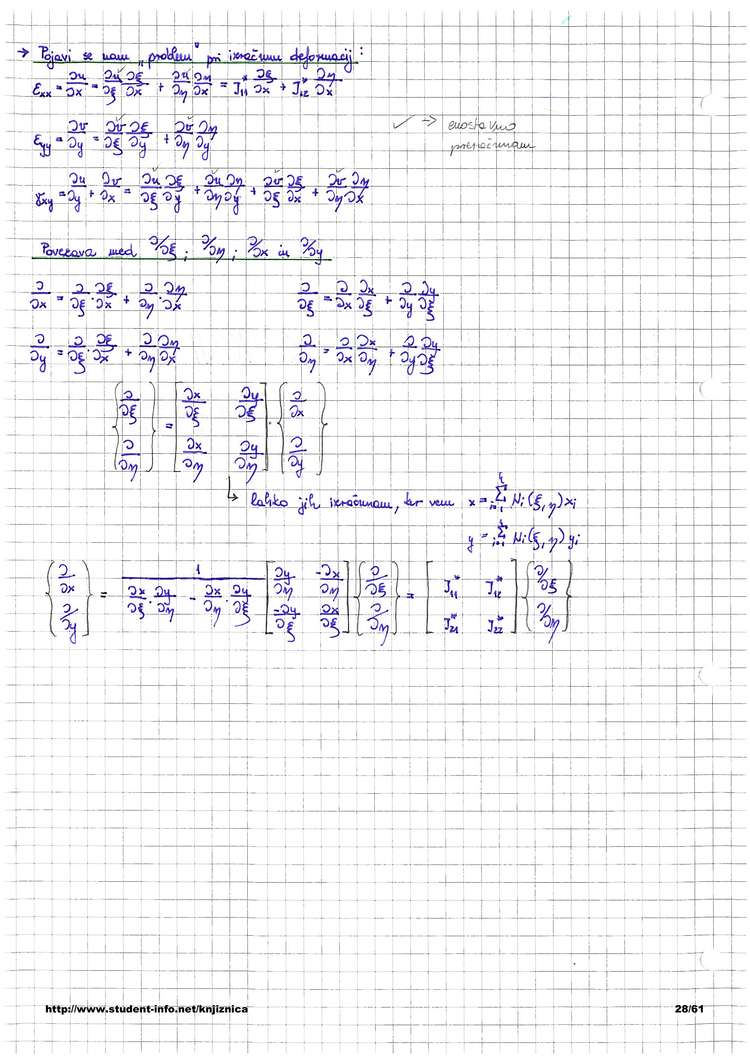 → Pojavi se nam „problem" pri izračunu deformacij:
εxx = ∂u/∂x = ∂u/∂ξ ∂ξ/∂x + ∂u/∂η ∂η/∂x = J₁₁* ∂ξ/∂x + J₁₂* ∂η/∂x
εyy = ∂v/∂y = ∂v/∂ξ ∂ξ/∂y + ∂v/∂η ∂η/∂y
✓ → enostavno
preračunam
γxy = ∂u/∂y + ∂v/∂x = ∂u/∂ξ ∂ξ/∂y + ∂u/∂η ∂η/∂y + ∂v/∂ξ ∂ξ/∂x + ∂v/∂η ∂η/∂x
Povezava med ∂/∂ξ ; ∂/∂η ; ∂/∂x in ∂/∂y
∂/∂x = ∂/∂ξ · ∂ξ/∂x + ∂/∂η · ∂η/∂x
∂/∂ξ = ∂/∂x ∂x/∂ξ + ∂/∂y ∂y/∂ξ
∂/∂y = ∂/∂ξ · ∂ξ/∂x + ∂/∂η ∂η/∂x
∂/∂η = ∂/∂x ∂x/∂η + ∂/∂y ∂y/∂ξ
{∂/∂ξ ; ∂/∂η} = [∂x/∂ξ ∂y/∂ξ ; ∂x/∂η ∂y/∂η] · {∂/∂x ; ∂/∂y}
↳ lahko jih izračunam, ker vem x = Σ i=1 Ni(ξ,η) xi
y = Σ i=1 Ni(ξ,η) yi
{∂/∂x ; ∂/∂y} = 1/(∂x/∂ξ · ∂y/∂η - ∂x/∂η · ∂y/∂ξ) [∂y/∂η -∂x/∂η ; -∂y/∂ξ ∂x/∂ξ] {∂/∂ξ ; ∂/∂η} = [J₁₁* J₁₂* ; J₂₁* J₂₂*] {∂/∂ξ ; ∂/∂η}
http://www.student-info.net/knjiznica
28/61